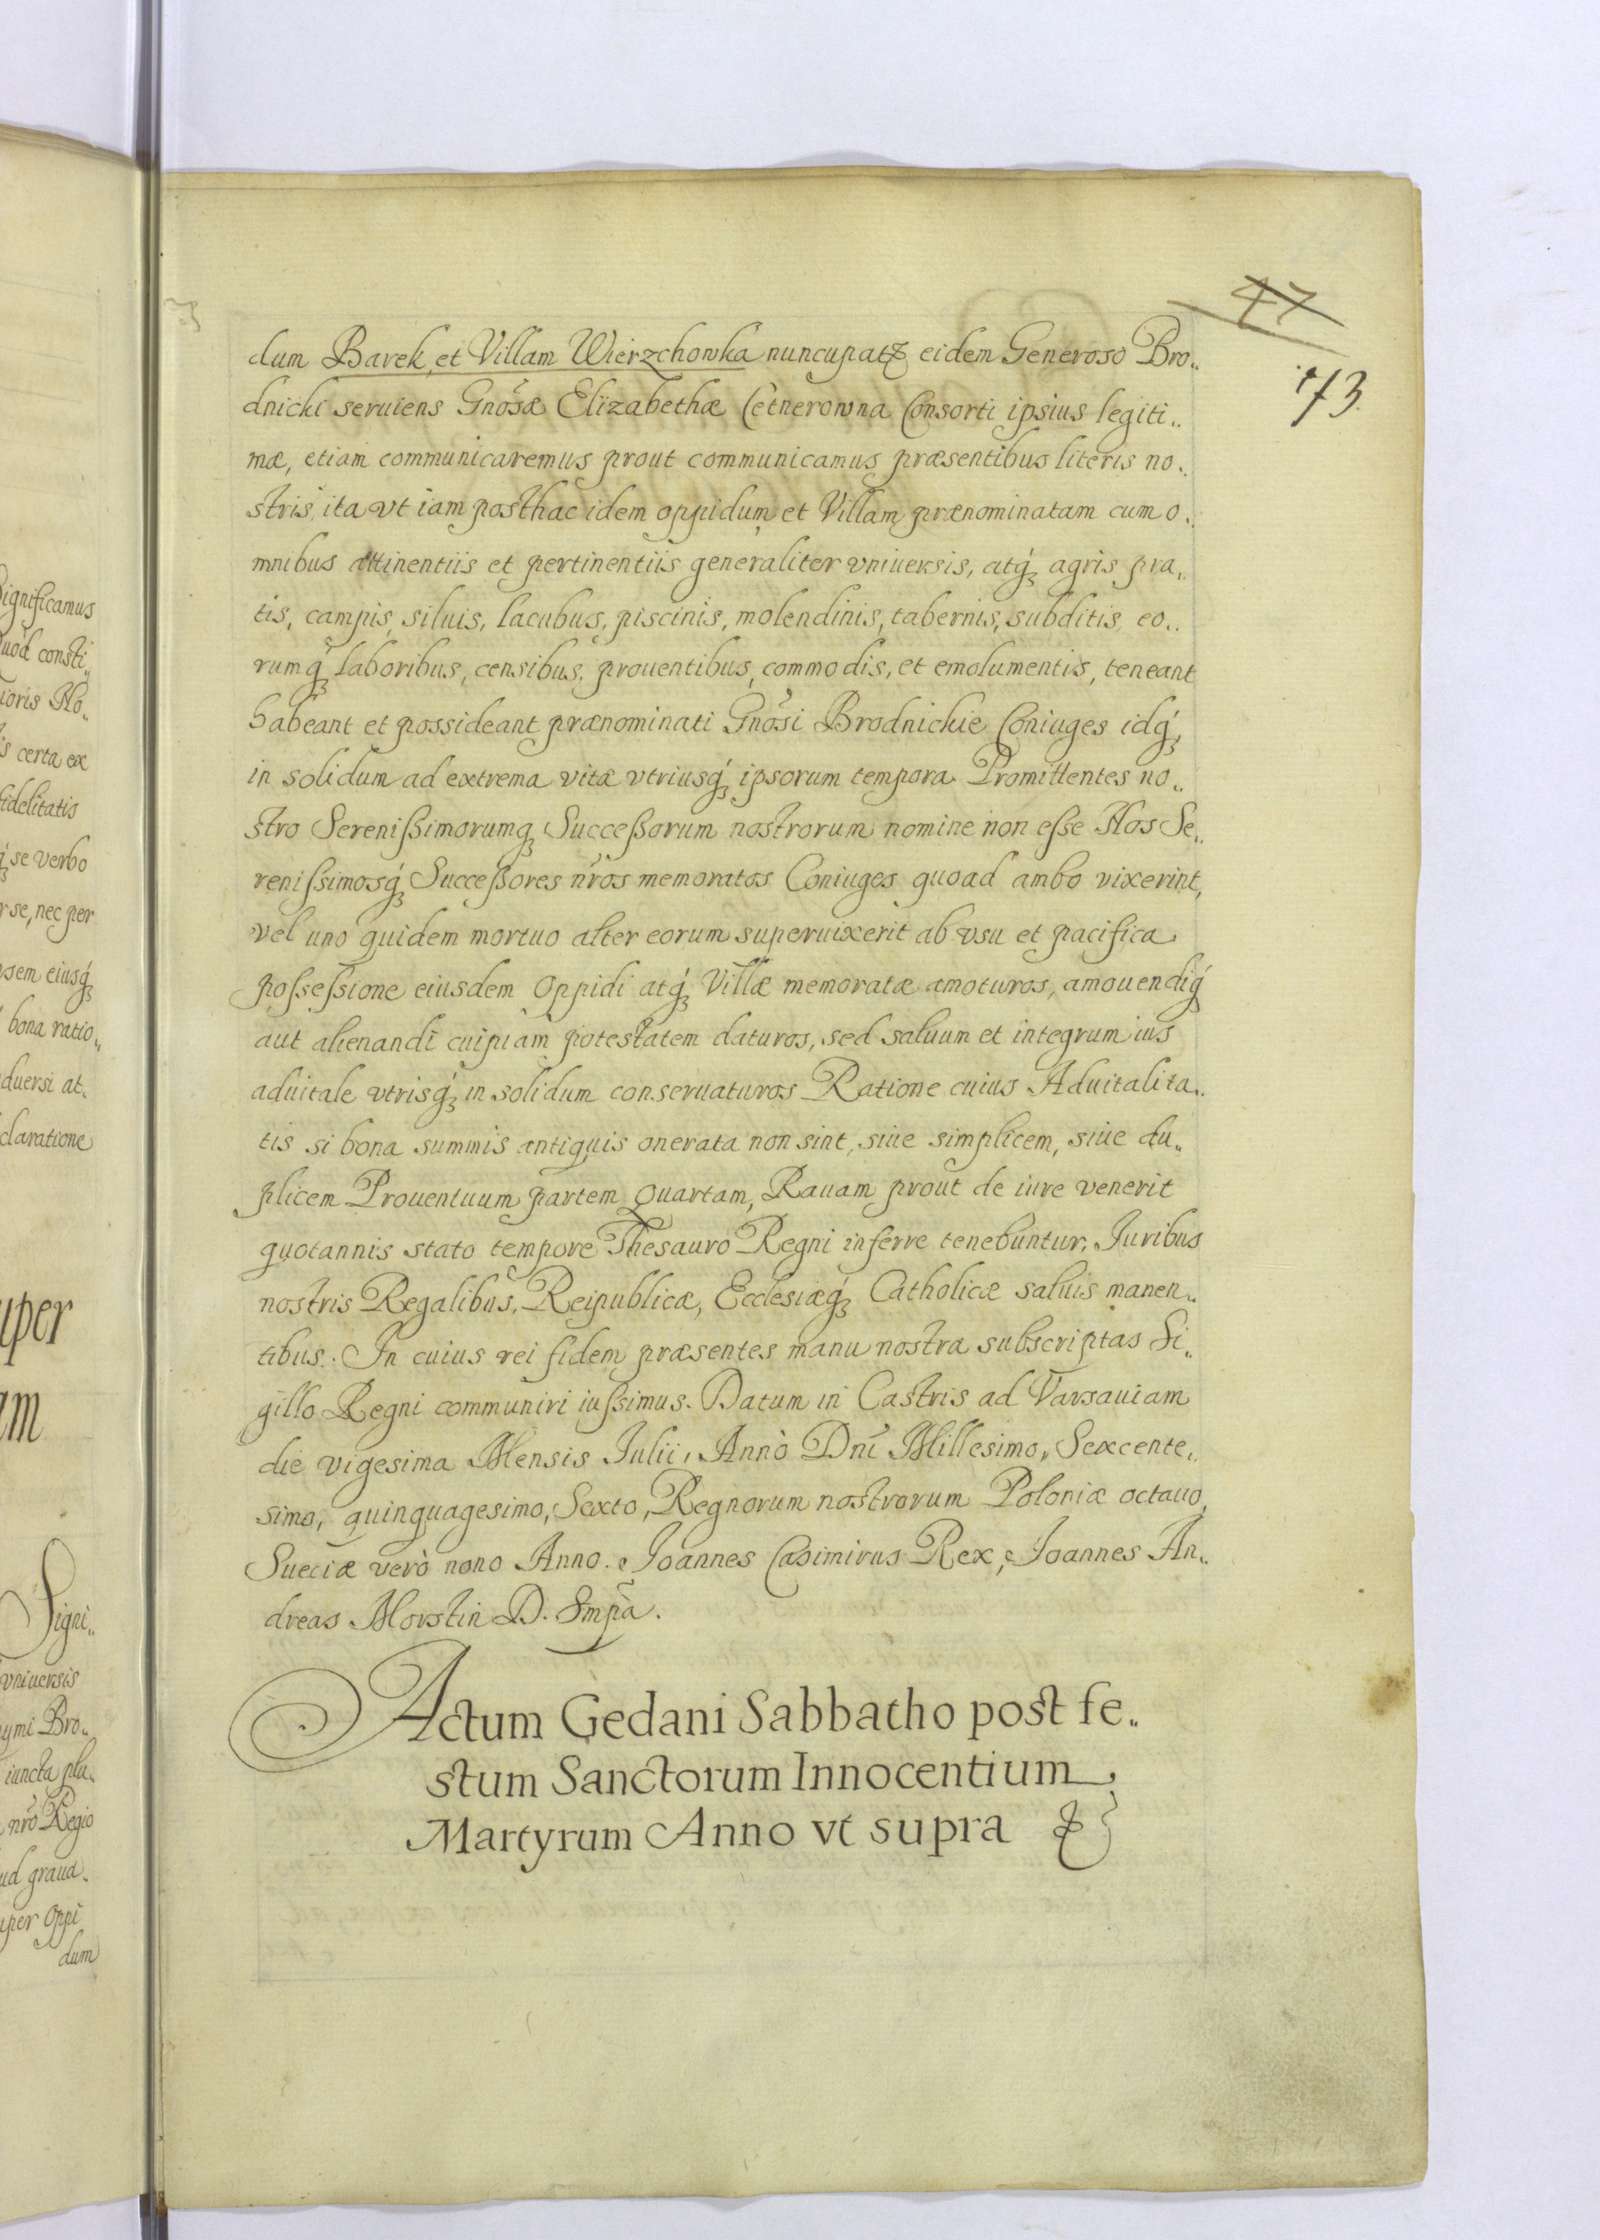 47
73.
dum Barek, et Villam Wierzchowka nuncupatꝫ eidem Generoso Bro„
dnicki seruiens Gnosæ Elizabethæ Cetnerowna Consorti ipsius legiti„
mæ, etiam communicaremus prout communicamus præsentibus literis no„
stris, ita vt iam posthac idem oppidum et Villam prænominatam cum o„
mnibus attinentiis et pertinentiis generaliter vniuersis, atq́ꝫ agris pra„
tis, campis, siluis, lacubus, piscinis, molendinis, tabernis, subditis, eo„
rumq́ꝫ laboribus, censibus, prouentibus, commodis, et emolumentis, teneant
habeant et possideant prænominati Gnosi Brodnickie Coniuges idq́ꝫ,
in solidum ad extrema vitæ vtriusq́ꝫ ipsorum tempora. Promittentes no„
stro Sereniſsimorumqꝫ Succeſsorum nostrorum nomine non eſse Nos Se„
reniſsimosq́ꝫ Succeſsores nr̃os memoratos Coniuges quoad ambo vixerint,
vel uno quidem mortuo alter eorum superuixerit ab vsu et pacifica
poſseſsione eiusdem Oppidi atq́ꝫ Villæ memoratæ amoturos, amouendiq́ꝫ
aut alienandi cuipiam potestatem daturos, sed saluum et integrum ius
aduitale vtrisq́ꝫ in solidum conseruaturos Ratione cuius Aduitalita„
tis si bona summis antiquis onerata non sint, siue simplicem, siue du„
plicem Prouentuum partem quartam, Rauam prout de iure venerit
quotannis stato tempore Thesauro Regni inferre tenebuntur, Juribus
nostris Regalibus, Reipublicæ, Ecclesiæq́ꝫ Catholicæ saluis manen„
tibus. In cuius rei fidem præsentes manu nostra subscriptas Si„
gillo Regni communiri iuſsimus. Datum in Castris ad Varsauiam
die vigesima Mensis Julii, Annò Dn̄i Millesimo, Sexcente„
simo, quinquagesimo, Sexto, Regnorum nostrorum Poloniæ octauo,
Sueciæ verò nono Anno. Joannes Casimirus Rex, Joannes An„
dreas Morstin D. Smpa.
Actum Gedani Sabbatho post fe„
stum Sanctorum Innocentium
Martyrum Anno vt supra
ignificamus
uod consti„
ioris No„
s certa ex
fidelitatis
q́ꝫ se verbo
r se, nec per
sem eiusq́ꝫ
bona ratio„
duersi at„
claratione
uper
am
Signi„
vniuersis
ymi Bro„
iuncta pla„
nr̃o Regio
ud graua„
uper Oppi
dum